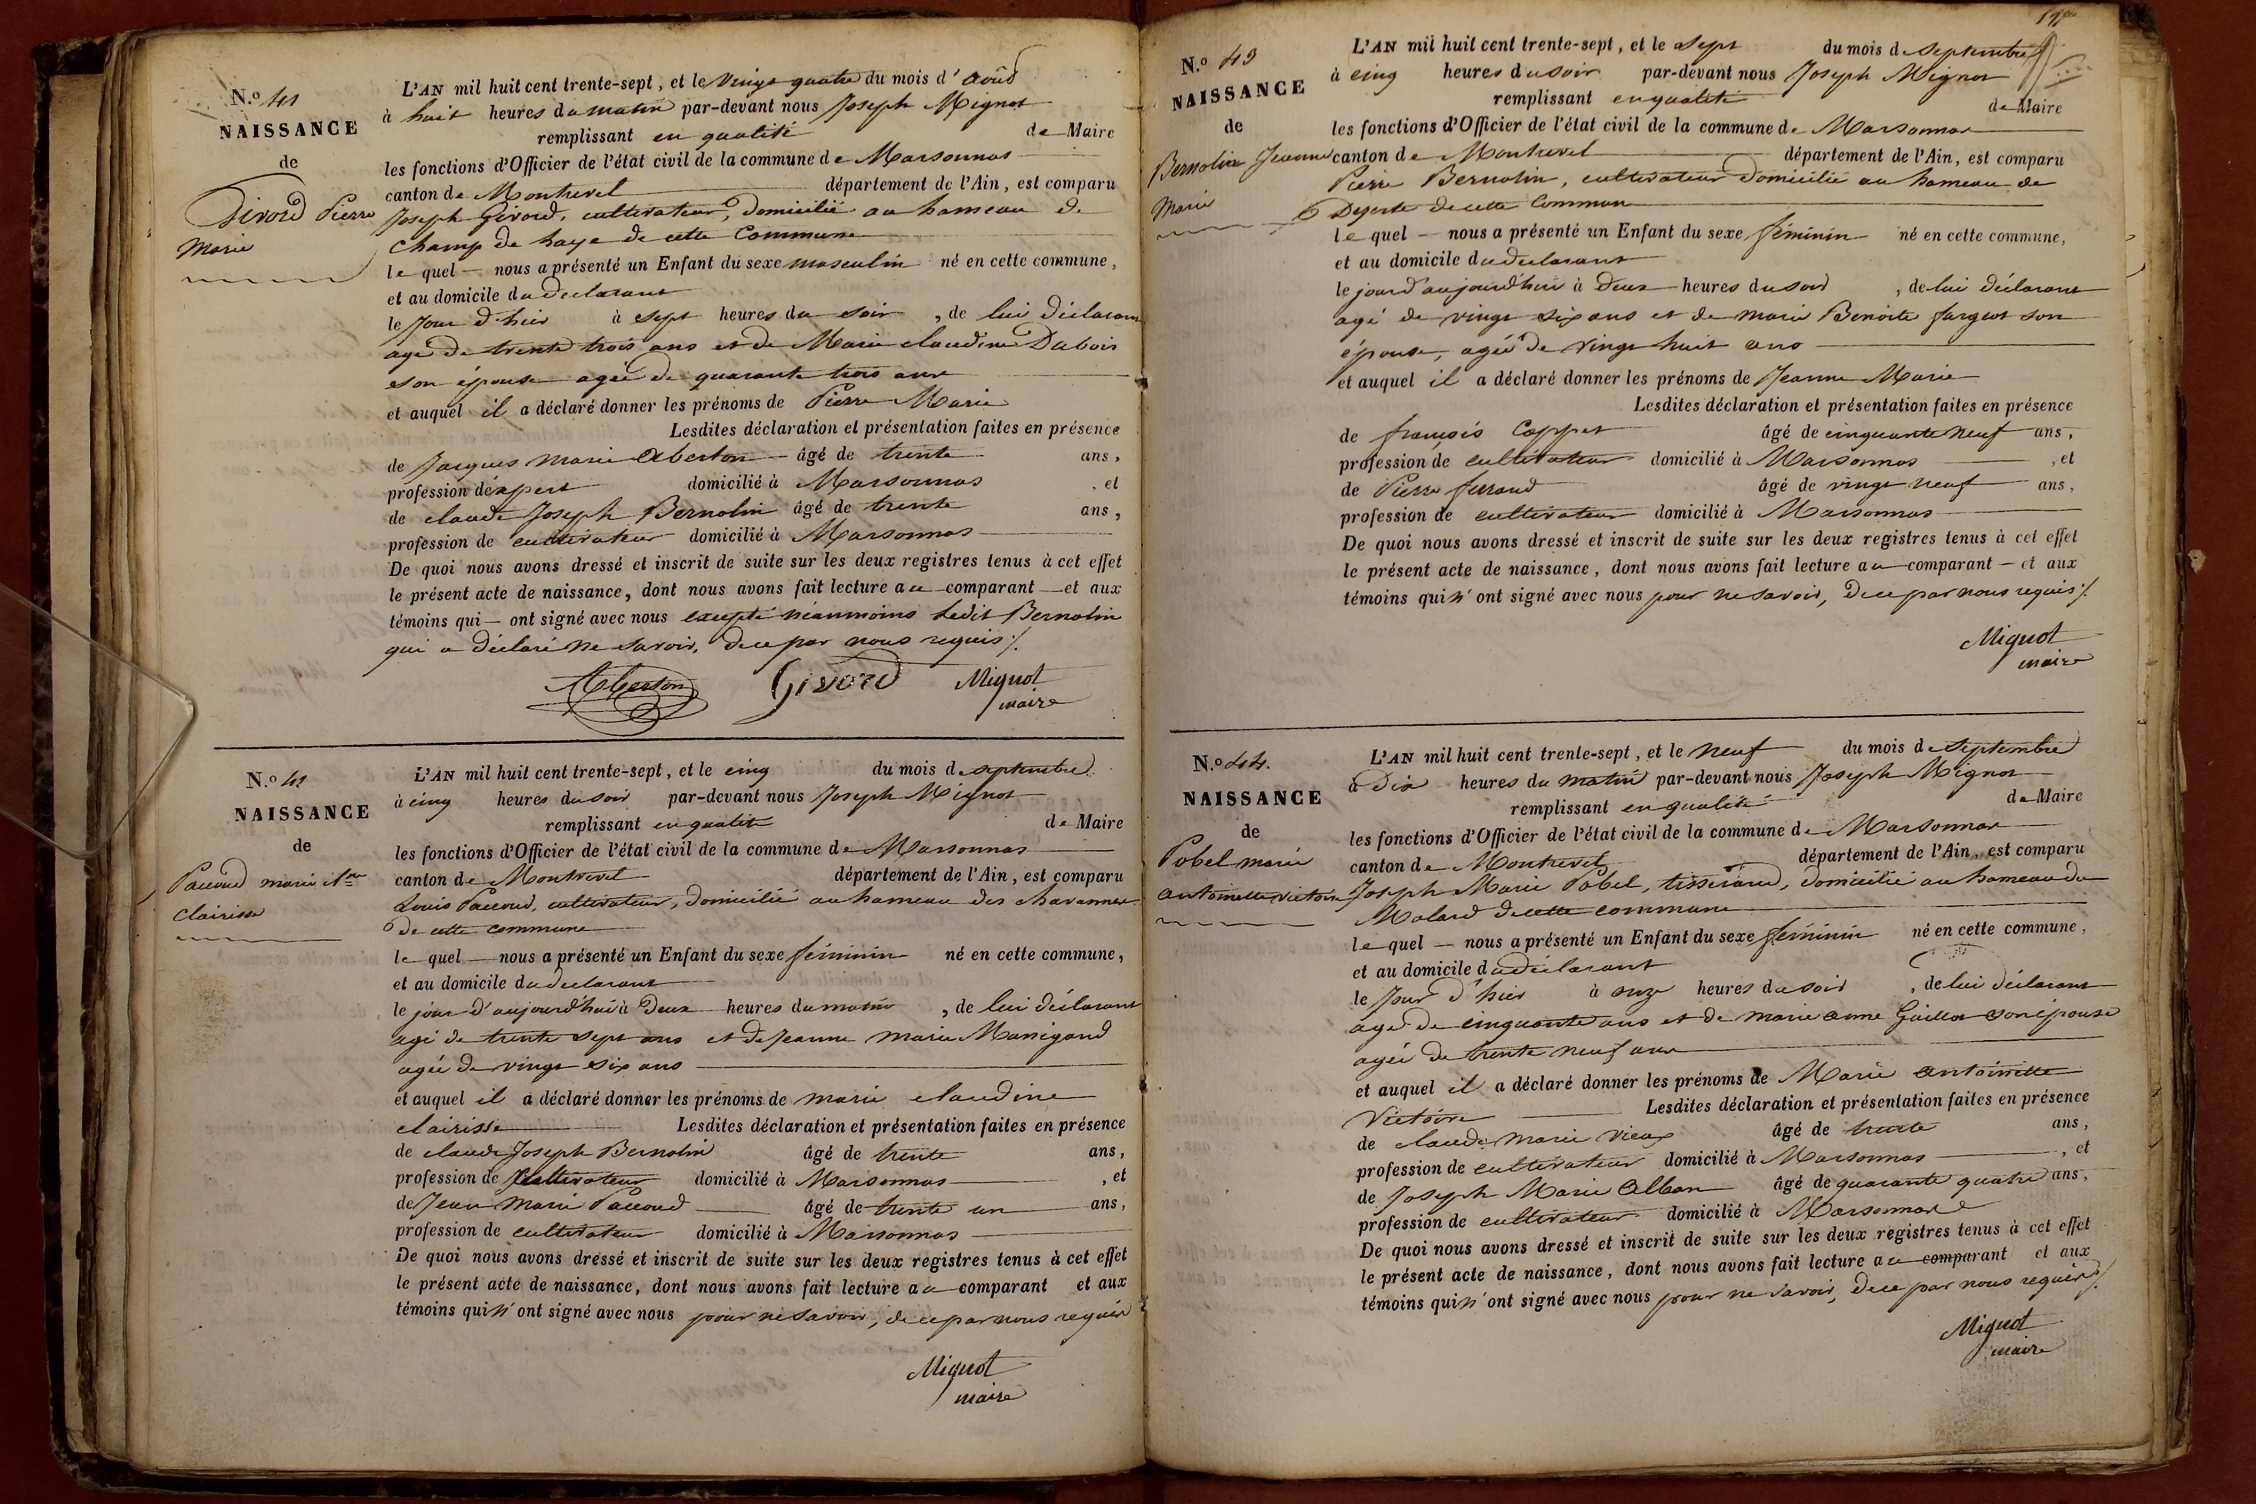 N.º 41
NAISSANCE
de
Givord Pierre
Marie
L'AN mil huit cent trente-sept, et le vingt quatre du mois d'août
à huit heures du matin par-devant nous Joseph Mignot
remplissant en qualité de Maire
les fonctions d'Officier de l'état civil de la commune de Marsonnas
canton de Montrevel département de l'Ain, est comparu
Joseph Givord, cultivateur, domicilié au hameau de
Champ de haye de cette Commune
le quel nous a présenté un Enfant du sexe masculin né en cette commune,
et au domicile du déclarant
le Jour d'hier à sept heures du soir, de lui déclarant
agé de trente trois ans et de Marie claudine Dubois
son épouse agée de quarante trois ans
et auquel il a déclaré donner les prénoms de Pierre Marie
Lesdites déclaration et présentation faites en présence
de Jacques marie Aberton âgé de trente ans,
profession d'expert domicilié à Marsonnas, et
de claude Joseph Bernolin âgé de trente ans,
profession de cultivateur domicilié à Marsonnas
De quoi nous avons dressé et inscrit de suite sur les deux registres tenus à cet effet
le présent acte de naissance, dont nous avons fait lecture au comparant et aux
témoins qui ont signé avec nous excepté néanmoins Ledit Bernolin
qui a déclaré ne savoir, de ce par nous requis ./.
Aberton Givord Mignot
maire
N.º 42
NAISSANCE
de
Paccoud marie
Clairisse
L'AN mil huit cent trente-sept, et le cinq du mois de septembre
à cinq heures du soir par-devant nous Joseph Mignot
remplissant en qualité de Maire
les fonctions d'Officier de l'état civil de la commune de Marsonnas
canton de Montrevel département de l'Ain, est comparu
Louis Paccoud, cultivateur, domicilié au hameau des chavannes
de cette commune
le quel nous a présenté un Enfant du sexe féminin né en cette commune,
et au domicile du déclarant
le jour d'aujourd'hui à Deux heures du matin, de lui déclarant
agé de trente sept ans et de Jeanne marie Manigand
agée de vingt six ans
et auquel il a déclaré donner les prénoms de marie claudine
clairisse Lesdites déclaration et présentation faites en présence
de claude Joseph Bernolin âgé de trente ans,
profession de cultivateur domicilié à Marsonnas, et
de Jean Marie Paccoud âgé de trente un ans,
profession de cultivateur domicilié à Marsonnas
De quoi nous avons dressé et inscrit de suite sur les deux registres tenus à cet effet
le présent acte de naissance, dont nous avons fait lecture au comparant et aux
témoins qui n'ont signé avec nous pour ne savoir, de ce par nous requis
Mignot
maire
N.º 43
NAISSANCE
de
Bernolin Jeanne
Marie
L'AN mil huit cent trente-sept, et le sept du mois de septembre
à cinq heures du soir par-devant nous Joseph Mignot
remplissant en qualité de Maire
les fonctions d'Officier de l'état civil de la commune de Marsonnas
canton de Montrevel département de l'Ain, est comparu
Pierre Bernolin, cultivateur domicilié au hameau de
Deserte de cette Commune
le quel nous a présenté un Enfant du sexe féminin né en cette commune,
et au domicile du déclarant
le jour d'aujourd'hui à Deux heures du soir, de lui déclarant
agé de vingt six ans et de marie Benoite fargeot son
épouse, agée de vingt huit ans
et auquel il a déclaré donner les prénoms de Jeanne Marie
Lesdites déclaration et présentation faites en présence
de françois Coppet âgé de cinquante neuf ans,
profession de cultivateur domicilié à Marsonnas, et
de Pierre ferrand âgé de vingt neuf ans,
profession de cultivateur domicilié à Marsonnas
De quoi nous avons dressé et inscrit de suite sur les deux registres tenus à cet effet
le présent acte de naissance, dont nous avons fait lecture au comparant et aux
témoins qui n'ont signé avec nous pour ne savoir, de ce par nous requis ./.
Mignot
maire
N.º 44.
NAISSANCE
de
Pobel marie
antoinette victoire
L'AN mil huit cent trente-sept, et le neuf du mois de septembre
à Dix heures du matin par-devant nous Joseph Mignot
remplissant en qualité de Maire
les fonctions d'Officier de l'état civil de la commune de Marsonnas
canton de Montrevel département de l'Ain, est comparu
Joseph Marie Pobel, tisserand, domicilié au hameau du
Molard de cette commune
le quel nous a présenté un Enfant du sexe féminin né en cette commune,
et au domicile du déclarant
le Jour d'hier à onze heures du soir, de lui déclarant
agé de cinquante ans et de marie anne Guillot son épouse
agée de trente neuf ans
et auquel il a déclaré donner les prénoms de Marie antoinette
Victoire Lesdites déclaration et présentation faites en présence
de claude marie vieux âgé de trente ans,
profession de cultivateur domicilié à Marsonnas, et
de Joseph Marie Alban âgé de quarante quatre ans,
profession de cultivateur domicilié à Marsonnas
De quoi nous avons dressé et inscrit de suite sur les deux registres tenus à cet effet
le présent acte de naissance, dont nous avons fait lecture au comparant et aux
témoins qui n'ont signé avec nous pour ne savoir, de ce par nous requis ./.
Mignot
maire